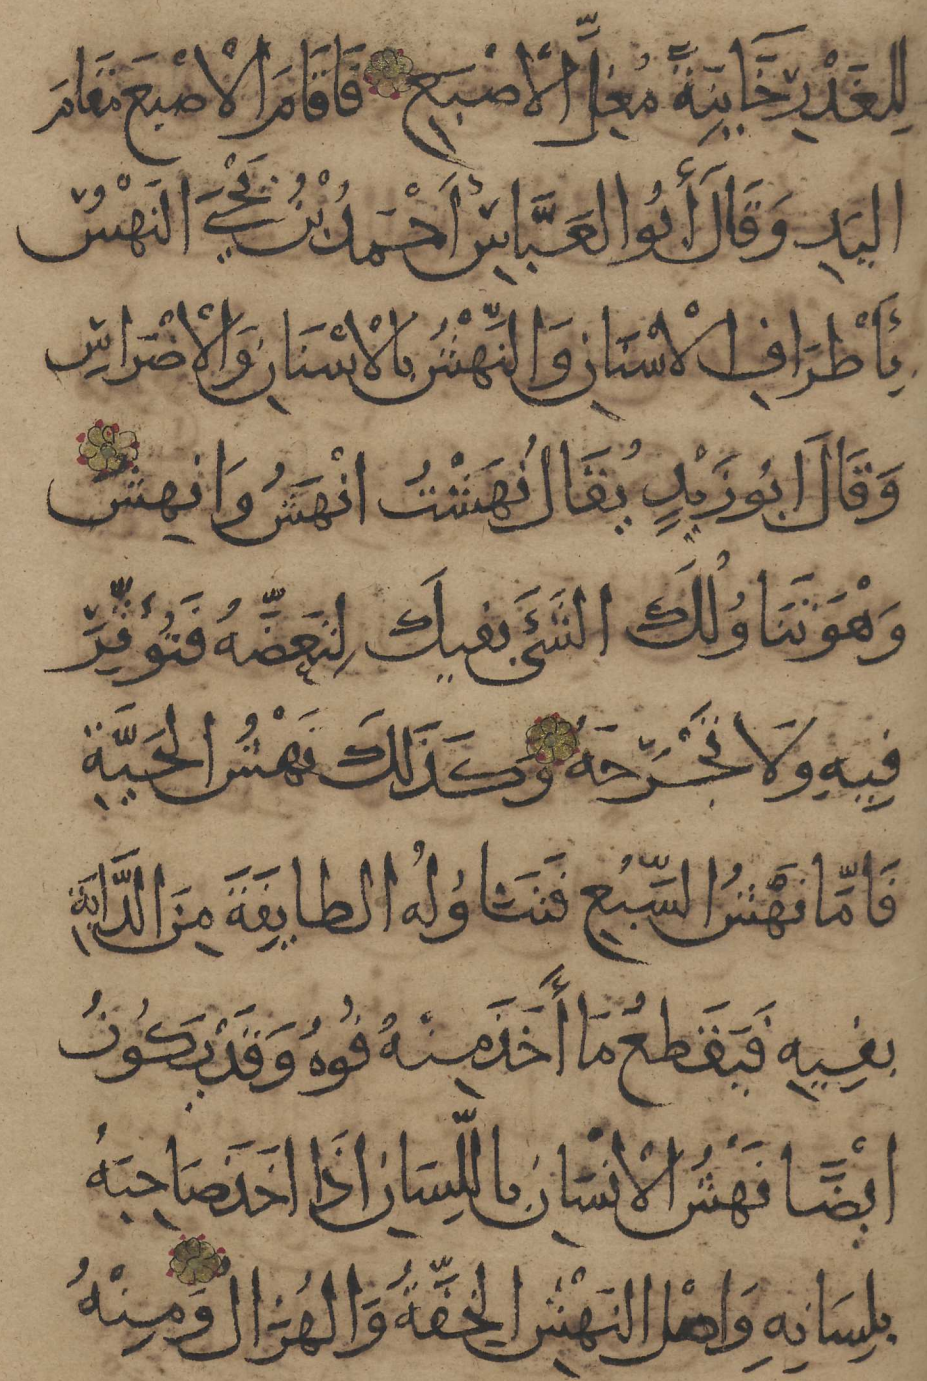 لِلغَدْرِ خَايِنَةً مُغِلَّ الْأِصْبَعِ فَاقَامَ الْاصْبَعَ مَقَامَ
اليَدِ وَقَالَ أَبُو العَبَّاسِ أَحْمَدُ بْنُ يَحْيَى النَهْسُ
بِأَطْرَافِ الْاسْنَانِ وَالنَّهْشُ بِالْاسْنَانِ وَالْاضْرَاسِ
وَقَالَ ابُو زَيْدٍ يُقَالُ نَهَشْتُ انْهَشُ وَانهِشُ
وَهْوَ تَنَاوُلُكَ الشَئَ بفِيكَ لِتَعَضَّهُ فَتُؤَثِّرَ
فِيهِ وَلَا تَجْرَحَهُ وَكَذَلكَ نَهْشُ الحَيَّةِ
فَامَّا نَهْشُ السَّبُعِ فَتَنَاوُلُهُ الطايِفَةَ مِنَ الدَّابَةِ
بفِيهِ فَيَقطَعُ مَا أَخَذَ مِنْهُ فُوهُ وَقَدْ يَكُونُ
ايْضًا نَهْشُ الْانْسَانِ باللِّسَانِ اذَا اخَذَ صَاحِبَهُ
بلِسَانِهِ وَاصْل النَهْشِ الخِفَّةُ وَالهُزَالُ وَمِنْهُ